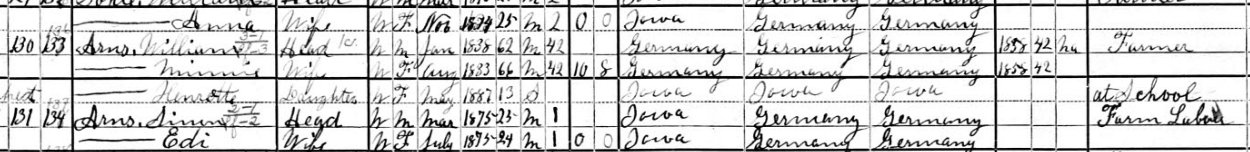 Anna Wife W F Nov 1874 25 M 2 0 0 Iowa Germany Germany
130 133 Arns, William Head W M Jan 1838 62 M 42 Germany Germany Germany 1858 42 Na Farmer
Minnie Wife W F Aug 1833 66 M 42 10 8 Germany Germany Germany 1858 42
Henrette Daughter W F May 1887 13 S Iowa Iowa Iowa at School
131 134 Arns, Simon Head W M Mar 1875 25 M 1 Iowa Germany Germany Farm Labor
Edi Wife W F July 1875 24 M 1 0 0 Iowa Germany Germany